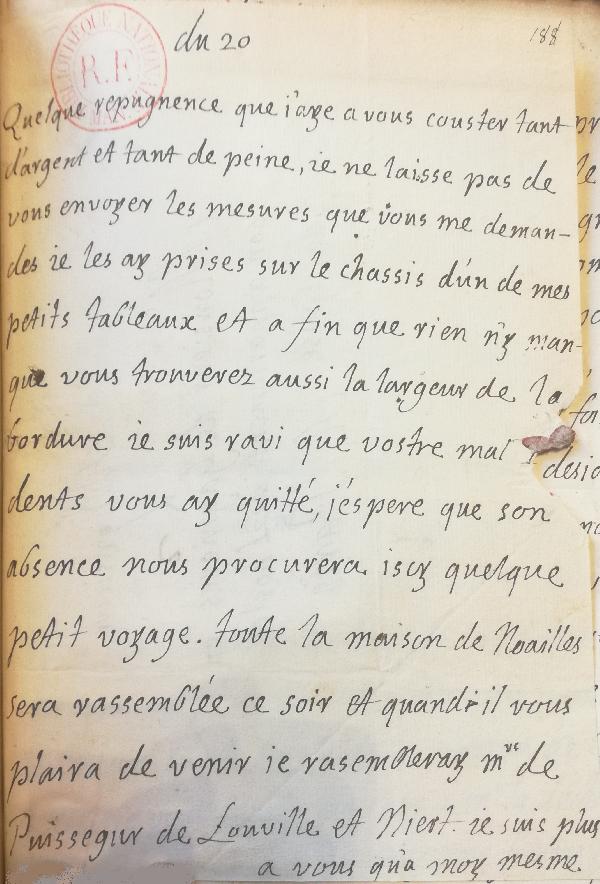 du 20
188
BIBLIOTHEQUE NATIONALE
R.F.
MAN.
Quelque repugnence que i'aye a vous couster tant
d'argent et tant de peine, ie ne laisse pas de
vous envoyer les mesures que vous me deman-
des ie les ay prises sur le chassis d'un de mes
petits tableaux et a fin que rien n'y man-
que vous trouverez aussi la largeur de la
bordure ie suis ravi que vostre mal
dents vous ay quitté, j'espere que son
absence nous procurera iscy quelque
petit voyage. toute la maison de Noailles
sera rassemblée ce soir et quand il vous
plaira de venir ie rasembleray mrs de
Puissegur de Louville et Niert. ie suis plus
a vous qu'a moy mesme.